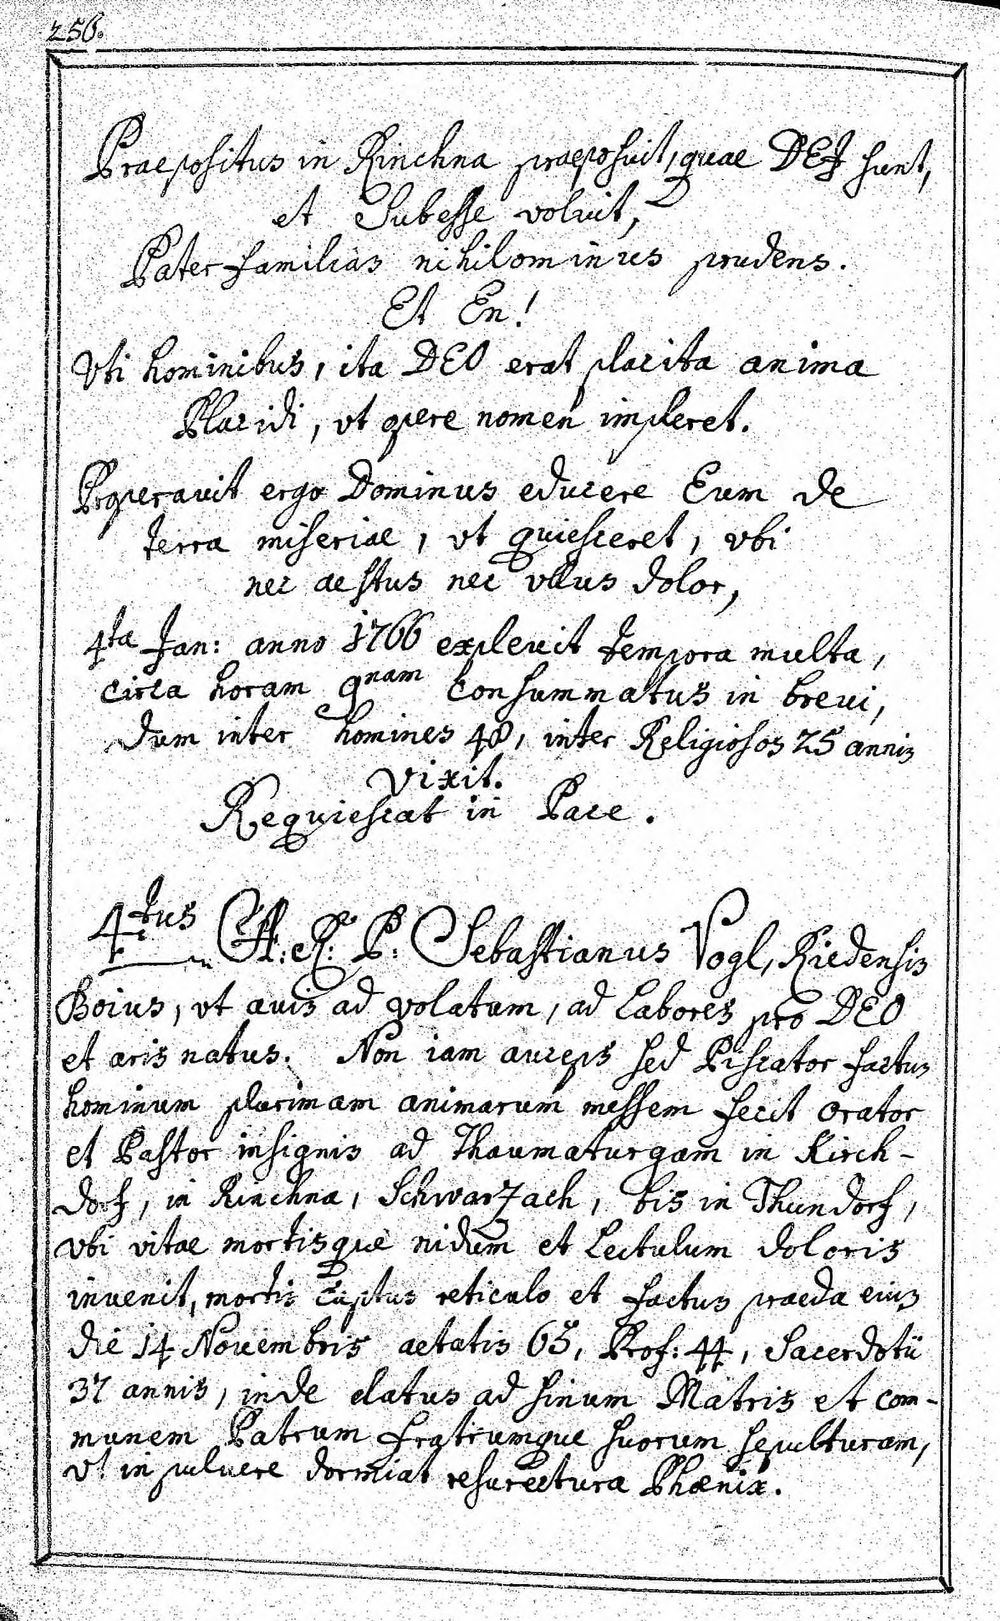 256.
Praepositus in Rinchna praeposuit, quae DEI sunt,
et Subesse voluit,
Pater familias nihilominus prudens.
Et En!
Vti hominibus, ita DEO erat placita anima
Placidi, vt opere nomen impleret.
Properauit ergo Dominus educere Eum de
terra miseriae, vt quiesceret, vbi
nec aestus nec vllus dolor,
4ta Jan: anno 1766 expleuit tempora multa,
circa horam 9nam Consummatus in breui,
Dum inter homines 48, inter Religiosos 25 annis
vixit.
Requiescat in Pace.
4tus A: R: P: Sebastianus Vogl, Riedensis
Boius, vt auis ad volatum, ad Labores pro DEO
et aris natus. Non iam auceps sed Piscator factus
hominum plurimam animarum messem fecit Orator
et Pastor insignis ad Thaumaturgam in Kirch-
dorf, in Rinchna, Schwarzach, bis in Thundorf,
vbi vitae mortisque nidum et Lectulum doloris
inuenit, mortis captus reticulo et factus praeda eius
die 14 Nouembris aetatis 65, Prof: 44, Sacerdotii
37 annis, inde elatus ad sinum Matris et com-
munem Patrum fratrumque suorum sepulturam,
vt in puluere dormiat resurectura Phoenix.